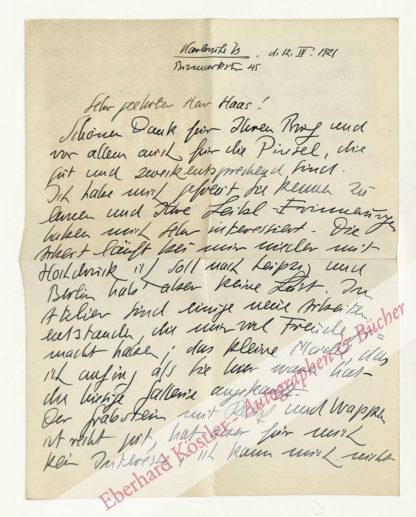 Karlsruhe i/B . d. 12. IV. 1921
Bismarckstr 45
Sehr geehrter Herr Haas!
Schönen Dank für Ihren Brief und
vor allem auch für die Pinsel, die
gut und zweckentsprechend sind.
Ich habe mich gefreut Sie kennen zu
lernen und Ihre Leibl-Erinnerungen
haben mich sehr interessiert. Die
Arbeit läuft bei mir wieder mit
Hochdruck, ich soll nach Leipzig und
Berlin, habe aber keine Lust. Im
Atelier sind einige neue Arbeiten
entstanden, die mir viel Freude ge-
macht haben; das kleine das
ich anfing als Sie hier waren hat
die hiesige Gallerie angekauft.
Der Grabstein mit und Wappen
ist recht gut, hat aber für mich
kein Interesse, ich kann mich nicht
Eberhard Köstler Autographen & Bücher